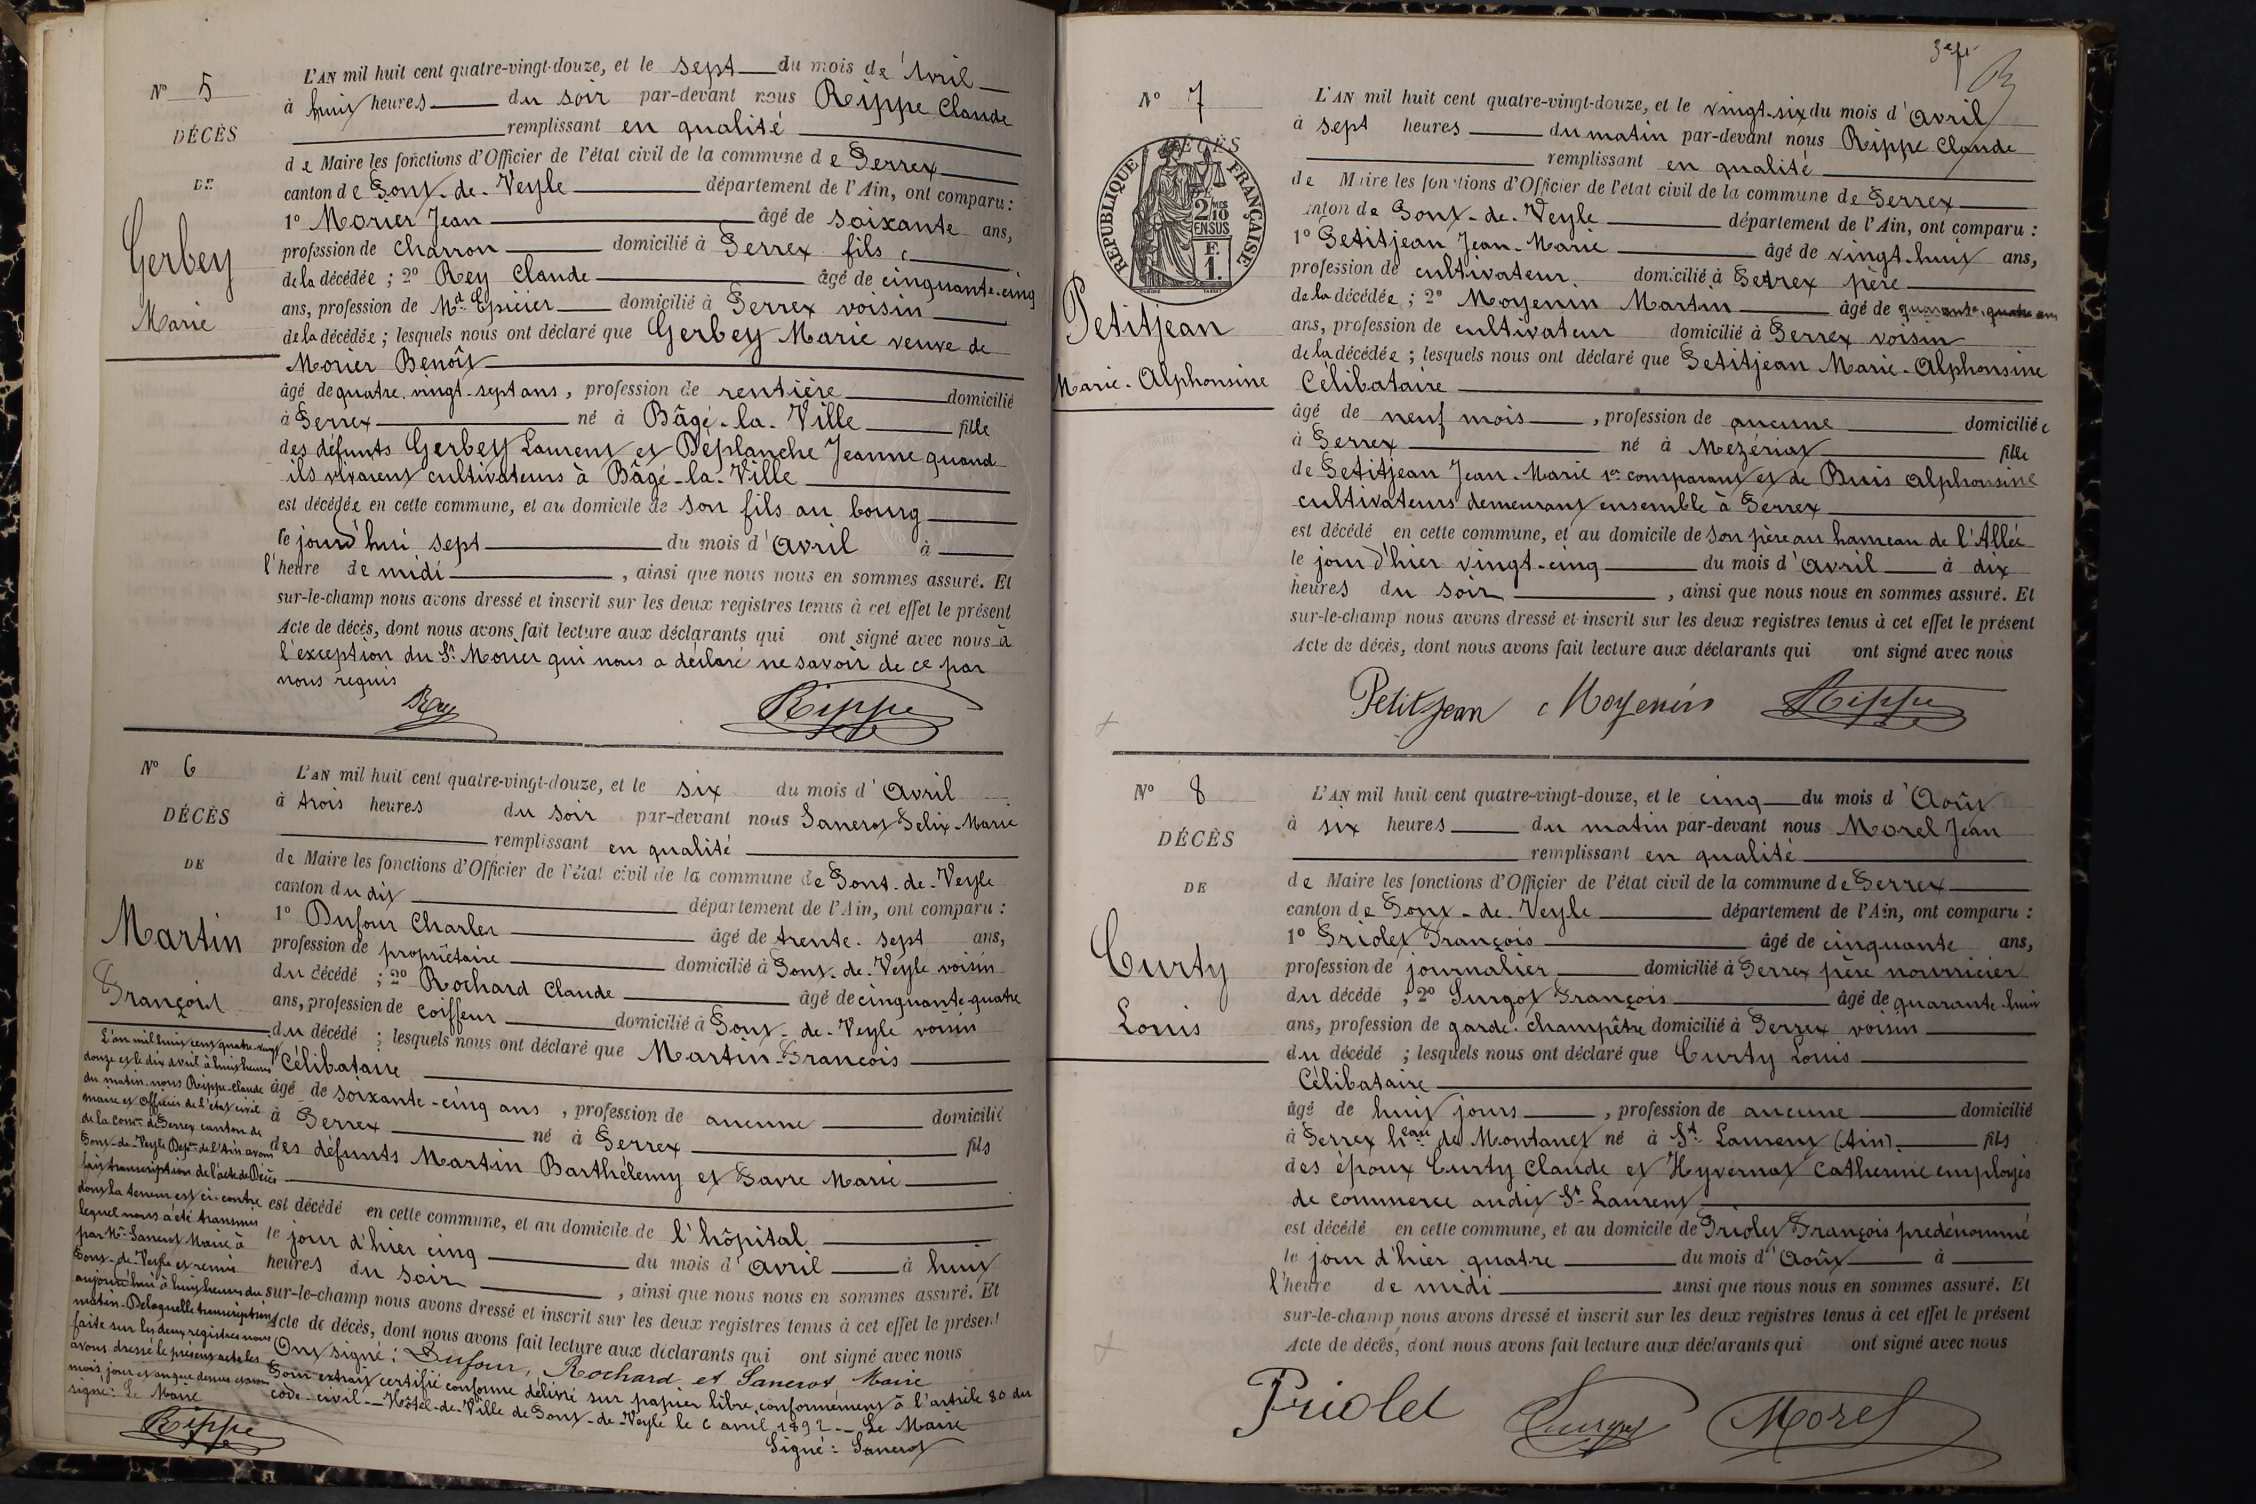 N° 5
DÉCÈS
DE
Gerbey
Marie
L'AN mil huit cent quatre-vingt-douze, et le sept du mois de Avril
à huit heures du soir par-devant nous Rippe Claude
remplissant en qualité
de Maire les fonctions d'Officier de l'état civil de la commune de Perrex
canton de Pont-de-Veyle département de l'Ain, ont comparu :
1° Morier Jean âgé de soixante ans,
profession de charron domicilié à Perrex fils
de la décédée ; 2° Rey Claude âgé de cinquante-cinq
ans, profession de Md Epicier domicilié à Perrex voisin
de la décédée ; lesquels nous ont déclaré que Gerbey Marie veuve de
Morier Benoît
âgé de quatre-vingt-sept ans, profession de rentière domicilié
à Perrex né à Bâgé-la-Ville fille
des défunts Gerbey Laurent et Deplanche Jeanne quand
ils vivaient cultivateurs à Bâgé-la-Ville
est décédée en cette commune, et au domicile de son fils au bourg
le jourd'hui sept du mois d'avril à
l'heure de midi, ainsi que nous nous en sommes assuré. Et
sur-le-champ nous avons dressé et inscrit sur les deux registres tenus à cet effet le présent
Acte de décès, dont nous avons fait lecture aux déclarants qui ont signé avec nous à
l'exception du Sr Morier qui nous a déclaré ne savoir de ce par
nous requis
Rey Rippe
N° 6
DÉCÈS
DE
Martin
François
L'AN mil huit cent quatre-vingt-douze, et le six du mois d'Avril
à trois heures du soir par-devant nous Sanerot Félix-Marie
remplissant en qualité
de Maire les fonctions d'Officier de l'état civil de la commune de Pont-de-Veyle
canton dudit département de l'Ain, ont comparu :
1° Dufour Charles âgé de trente-sept ans,
profession de propriétaire domicilié à Pont-de-Veyle voisin
du décédé ; 2° Rochard Claude âgé de cinquante-quatre
ans, profession de coiffeur domicilié à Pont-de-Veyle voisin
du décédé ; lesquels nous ont déclaré que Martin François
Célibataire
âgé de soixante-cinq ans, profession de aucune domicilié
à Perrex né à Perrex fils
des défunts Martin Barthélemy et Favre Marie
est décédé en cette commune, et au domicile de l'hôpital
le jour d'hier cinq du mois d'avril à huit
heures du soir, ainsi que nous nous en sommes assuré. Et
sur-le-champ nous avons dressé et inscrit sur les deux registres tenus à cet effet le présent
Acte de décès, dont nous avons fait lecture aux déclarants qui ont signé avec nous
Ont signé : Dufour, Rochard et Sanerot Maire
Pour extrait certifié conforme délivré sur papier libre, conformément à l'article 80 du
code civil. — Hôtel-de-Ville de Pont-de-Veyle le 6 avril 1892 — Le Maire
Signé : Sanerot
L'an mil huit cent quatre-vingt
douze et le dix avril à huit heures
du matin, nous Rippe Claude
maire et Officier de l'état civil
de la comne de Perrex canton de
Pont-de-Veyle Dépt de l'Ain avons
fait transcription de l'acte de Décès
dont la teneur est ci-contre
lequel nous a été transmis
par Mr Sanerot Maire à
Pont-de-Veyle et remis
aujourd'hui à huit heures du
matin. De laquelle transcription
faite sur les deux registres nous
avons dressé le présent acte les
mois, jour et an que dessus et avons
signé : Le Maire
Rippe
N° 7
DÉCÈS
RÉPUBLIQUE FRANÇAISE
2 mes 10
EN SUS
F.
1.
Petitjean
Marie-Alphonsine
L'AN mil huit cent quatre-vingt-douze, et le vingt-six du mois d'avril
à sept heures du matin par-devant nous Rippe Claude
remplissant en qualité
de Maire les fonctions d'Officier de l'état civil de la commune de Perrex
canton de Pont-de-Veyle département de l'Ain, ont comparu :
1° Petitjean Jean-Marie âgé de vingt-huit ans,
profession de cultivateur domicilié à Perrex père
de la décédée ; 2° Moyenin Martin âgé de quarante-quatre ans
ans, profession de cultivateur domicilié à Perrex voisin
de la décédée ; lesquels nous ont déclaré que Petitjean Marie-Alphonsine
Célibataire
âgé de neuf mois, profession de aucune domiciliée
à Perrex né à Mezériat fille
de Petitjean Jean-Marie 1er comparant et de Buis Alphonsine
cultivateurs demeurant ensemble à Perrex
est décédé en cette commune, et au domicile de son père au hameau de l'Allée
le jour d'hier vingt-cinq du mois d'avril à dix
heures du soir, ainsi que nous nous en sommes assuré. Et
sur-le-champ nous avons dressé et inscrit sur les deux registres tenus à cet effet le présent
Acte de décès, dont nous avons fait lecture aux déclarants qui ont signé avec nous
Petitjean Moyenin Rippe
N° 8
DÉCÈS
DE
Curty
Louis
L'AN mil huit cent quatre-vingt-douze, et le cinq du mois d'Août
à six heures du matin par-devant nous Morel Jean
remplissant en qualité
de Maire les fonctions d'Officier de l'état civil de la commune de Perrex
canton de Pont-de-Veyle département de l'Ain, ont comparu :
1° Priolet François âgé de cinquante ans,
profession de journalier domicilié à Perrex père nourricier
du décédé ; 2° Surgot François âgé de quarante-huit
ans, profession de garde-champêtre domicilié à Perrex voisin
du décédé ; lesquels nous ont déclaré que Curty Louis
Célibataire
âgé de huit jours, profession de aucune domicilié
à Perrex heau de Montanet né à St Laurent (Ain) fils
des époux Curty Claude et Hyvernat Catherine employés
de commerce audit St Laurent
est décédé en cette commune, et au domicile de Priolet François prédénommé
le jour d'hier quatre du mois d'Août à
l'heure de midi ainsi que nous nous en sommes assuré. Et
sur-le-champ nous avons dressé et inscrit sur les deux registres tenus à cet effet le présent
Acte de décès, dont nous avons fait lecture aux déclarants qui ont signé avec nous
Priolet Surgot Morel